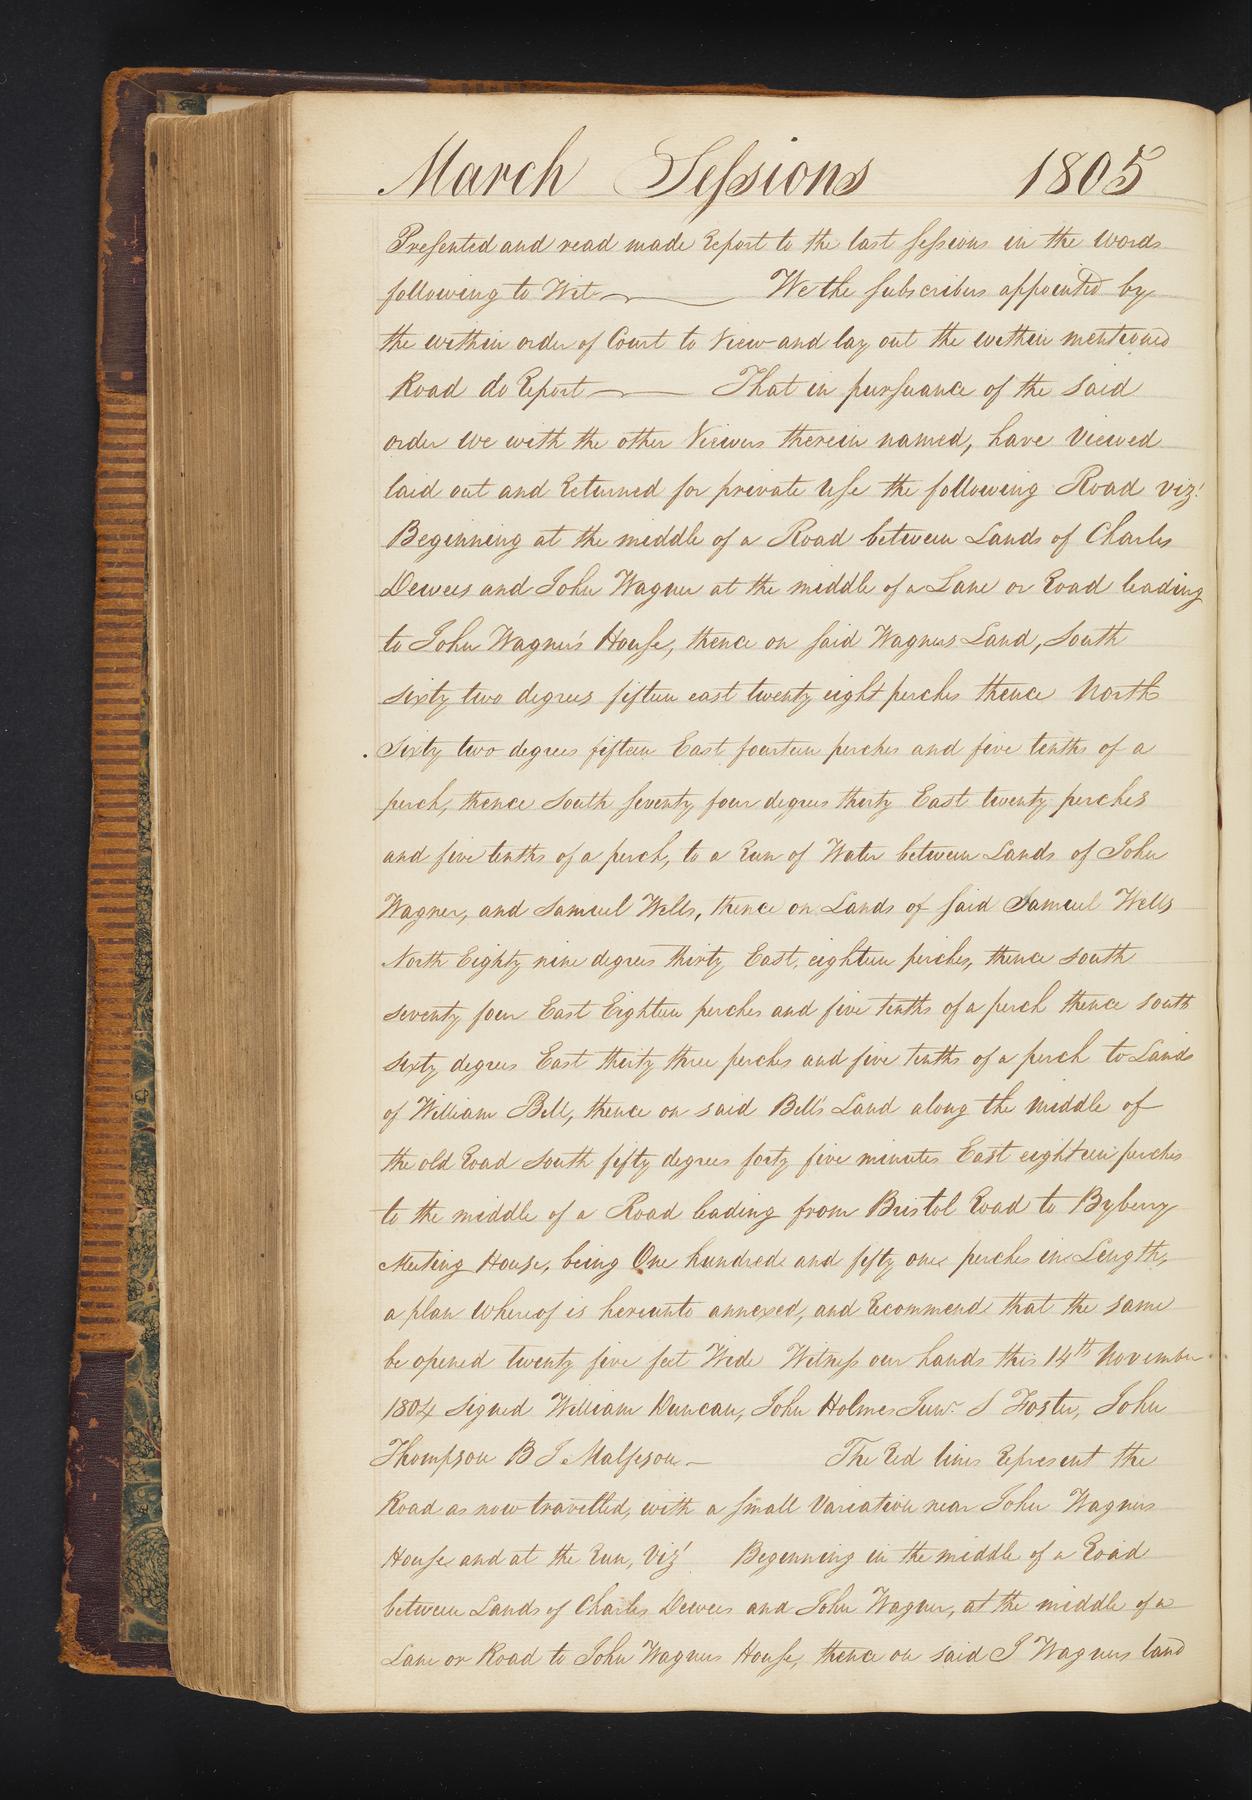 March Sessions 1805
Presented and read made Report to the last Sessions in the Words
following to Wit We the Subscribers appointed by
the within order of Court to View and lay out the within mentioned
Road do Report That in pursuance of the said
order we with the other Viewers therein named, have Viewed
laid out and Returned for private Use the following Road viz.t
Beginning at the middle of a Road between Lands of Charles
Dewees and John Wagner at the middle of a Lane or Road leading
to John Wagner's House, thence on said Wagners Land, South
sixty two degrees fifteen east twenty eight perches thence North
Sixty two degrees fifteen East fourteen perches and five tenths of a
perch, thence South seventy four degrees thirty East twenty perches
and five tenths of a perch, to a Run of Water between Lands of John
Wagner, and Samuel Wells, thence on Lands of said Samuel Wells
North Eighty nine degrees thirty East, eighteen perches, thence south
seventy four East Eighteen perches and five tenths of a perch thence south
sixty degrees East thirty three perches and five tenths of a perch to Lands
of William Bell, thence on said Bell's Land along the middle of
the old Road South fifty degrees forty five minutes East eighteen perches
to the middle of a Road leading from Bristol Road to Byberry
Meeting House, being One hundred and fifty one perches in Length,
a plan whereof is hereunto annexed, and Recommend that the same
be opened twenty five feet Wide Witness our hands this 14th November
1804 Signed William Duncan, John Holmes Junr. S Foster, John
Thompson B
The Red lines Represent the
Road as now travelled, with a small Variation near John Wagners
House and at the Run, Viz.t Beginning in the middle of a Road
between Lands of Charles Dewees and John Wagner, at the middle of a
Lane or Road to John Wagners House, thence on said J Wagners land